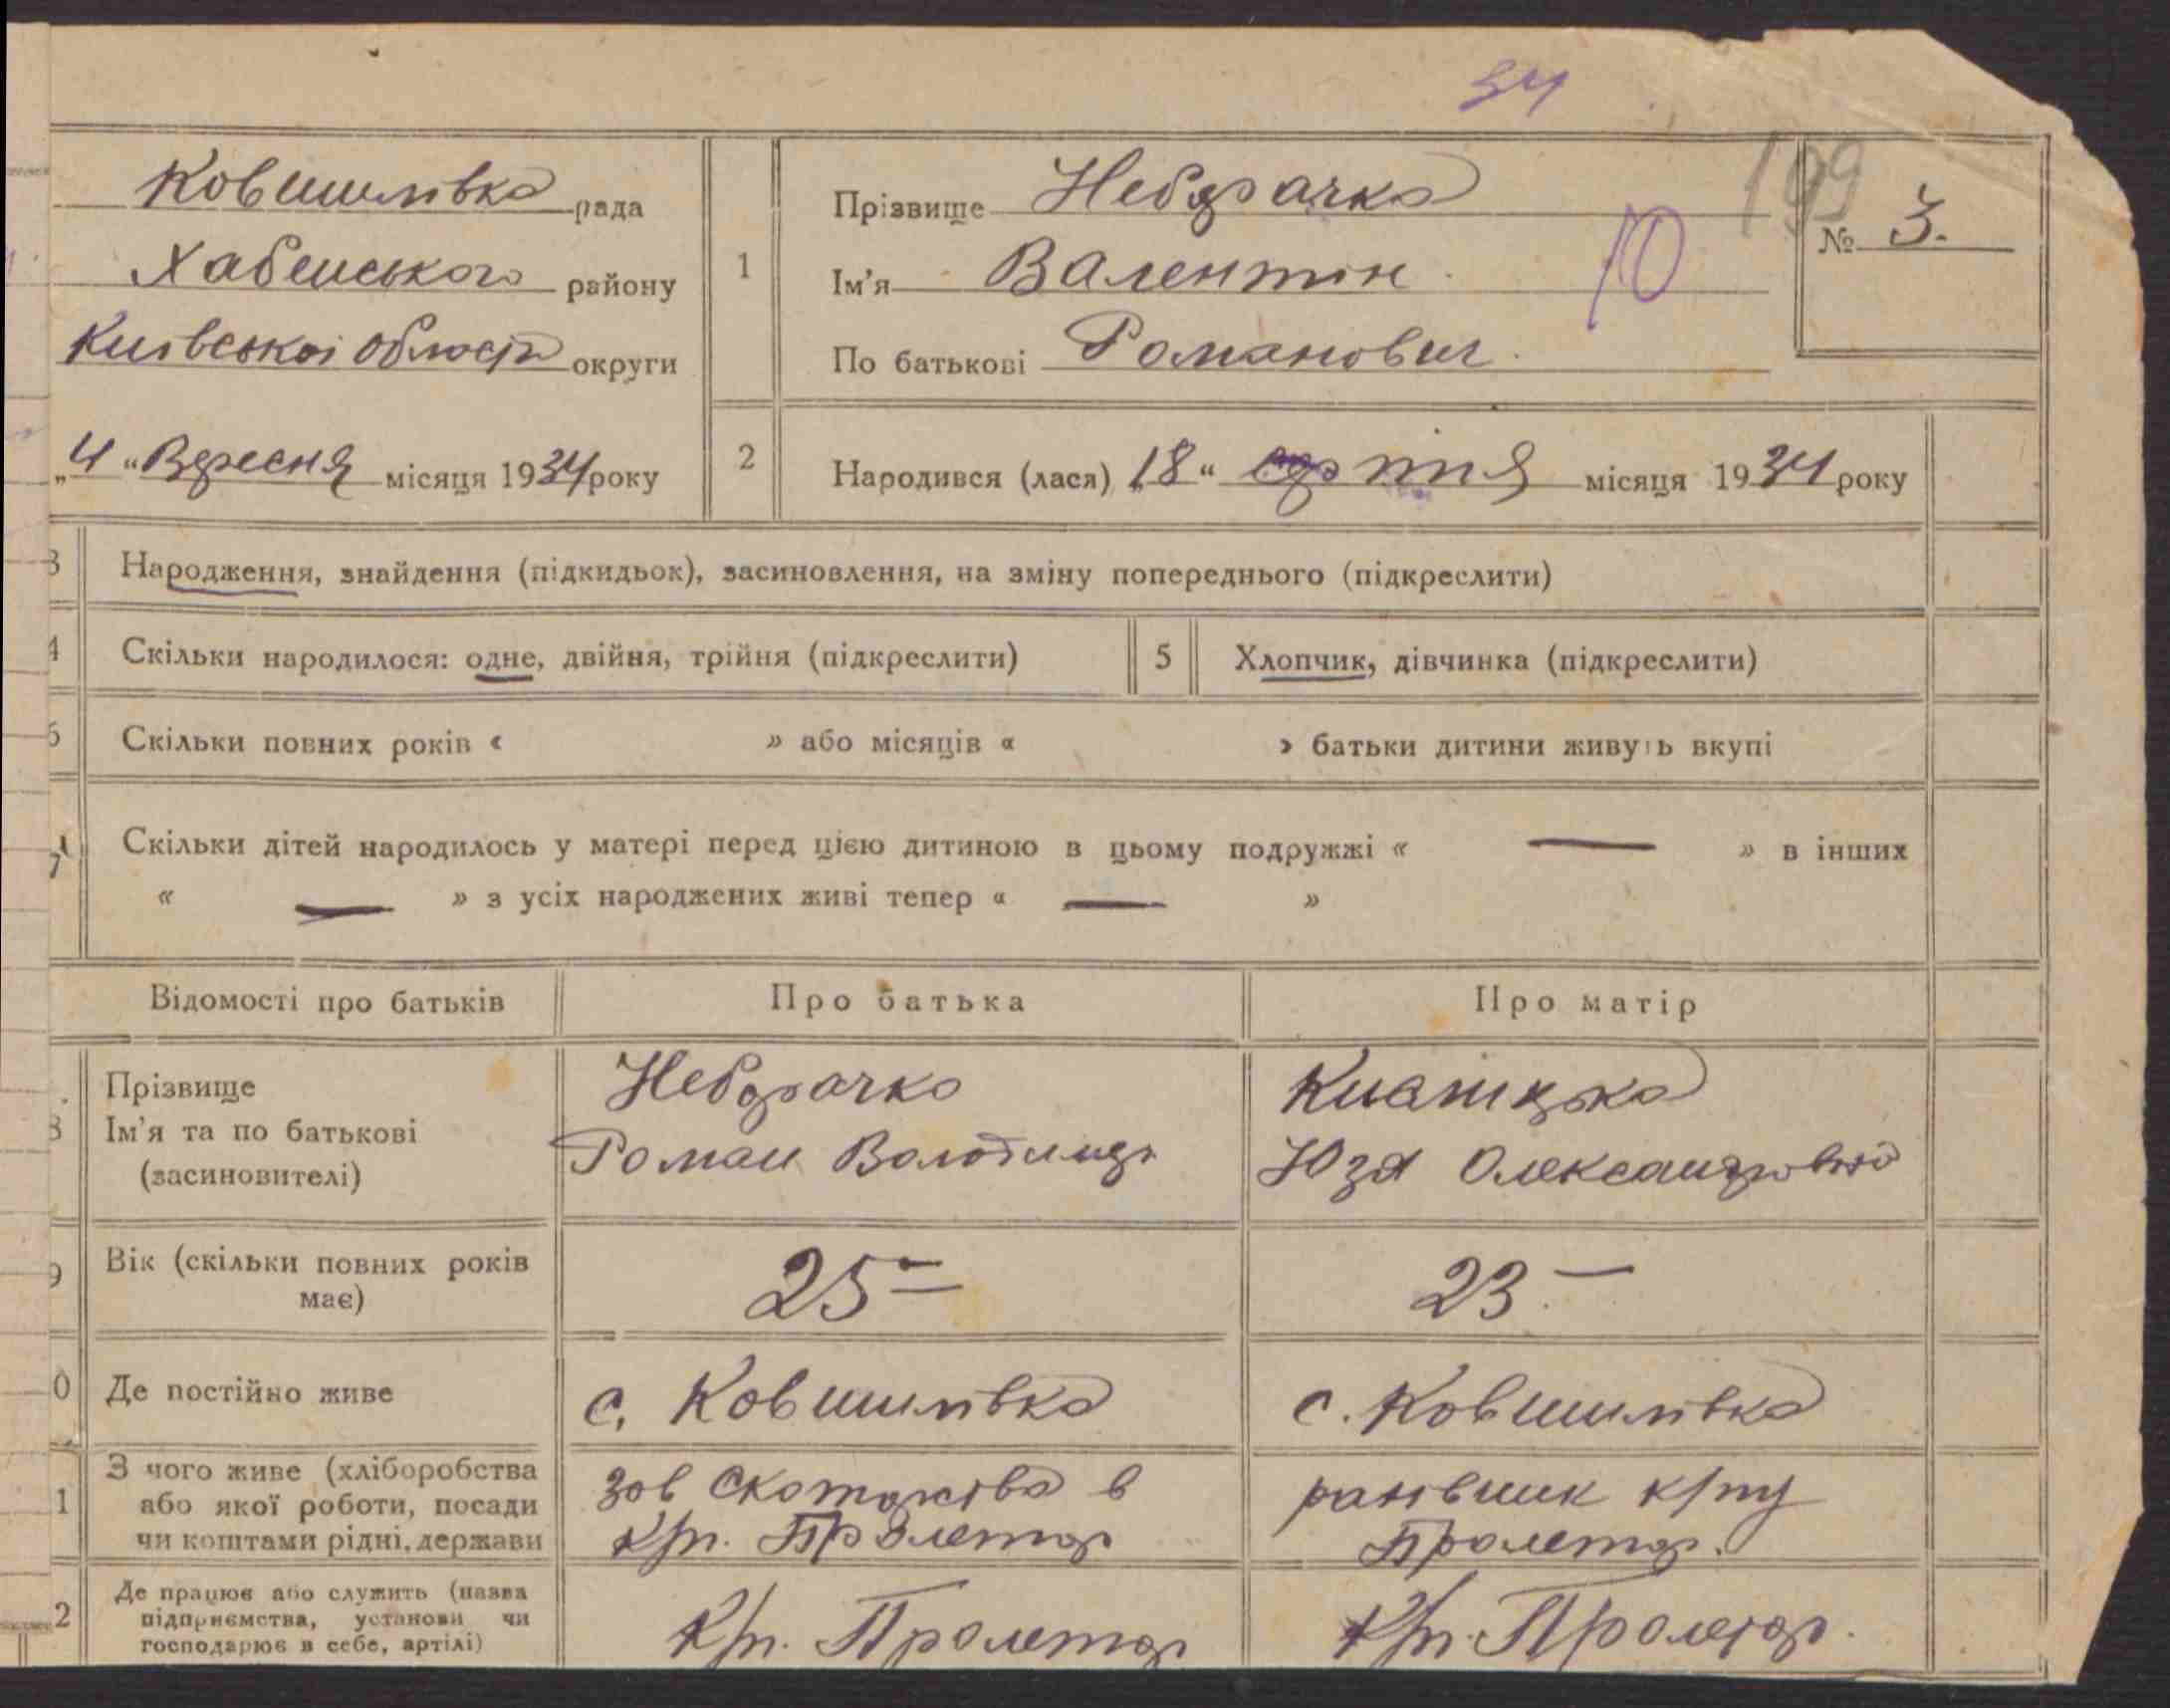 34
199
Ковшилівка рада
Хабенського району
Київської області округи
„4“ Вересня місяця 1934 року
1
Прізвище Неборачко
Ім'я Валентін
По батькові Романович
10
№ 3.
2
Народився (лася) „18“ серпня місяця 1934 року
3 Народження, знайдення (підкидьок), засиновлення, на зміну попереднього (підкреслити)
4 Скільки народилося: одне, двійня, трійня (підкреслити)
5 Хлопчик, дівчинка (підкреслити)
6 Скільки повних років « » або місяців « » батьки дитини живуть вкупі
7 Скільки дітей народилось у матері перед цією дитиною в цьому подружжі « — » в інших
« — » з усіх народжених живі тепер « — »
Відомості про батьків
Про батька
Про матір
8
Прізвище
Ім'я та по батькові
(засиновителі)
Неборачко
Роман Володимир
Юзя Олександровна
9
Вік (скільки повних років
має)
25 —
23. —
0 Де постійно живе
с. Ковшилівка
с. Ковшилівка
1
З чого живе (хліборобства
або якої роботи, посади
чи коштами рідні, держави
зав в
к/г. Пролетар
к/гу
Пролетар.
2
Де працює або служить (назва
підприємства, установи чи
господарює в себе, артілі)
К/г. Пролетар
К/г. Пролетар.